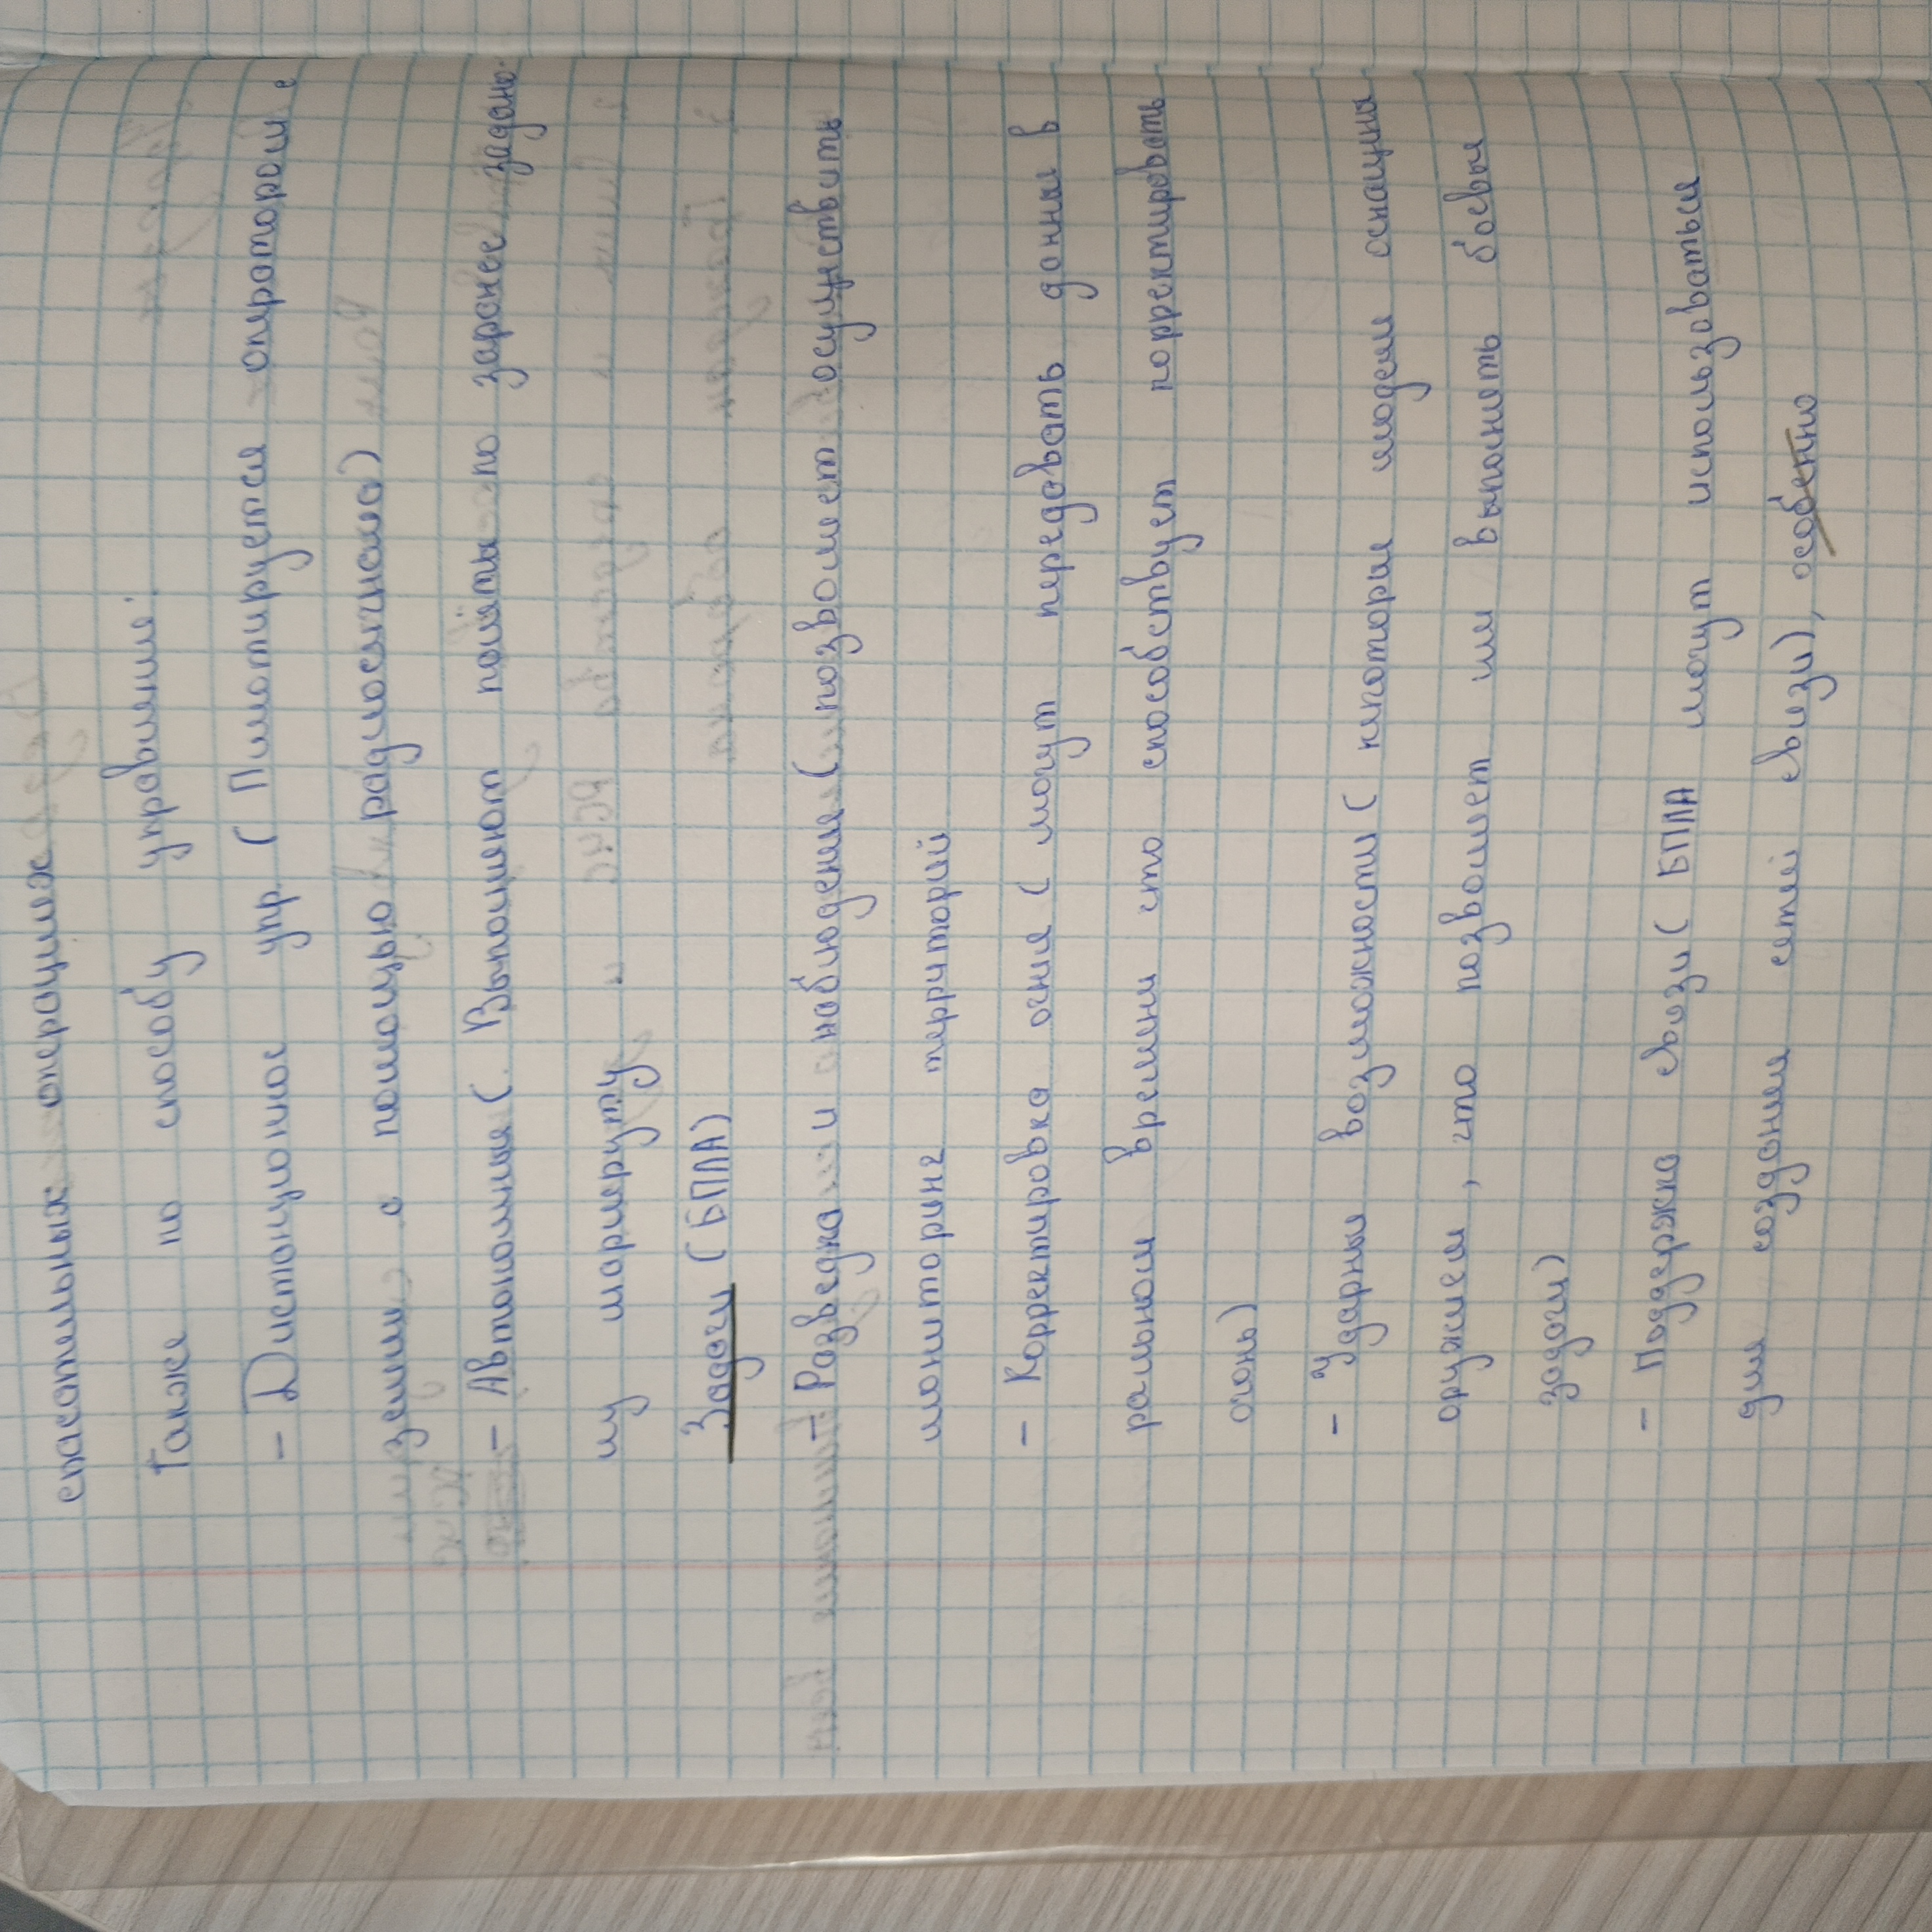 спасательных операциях
Также по способу управления:
- Дистанционное упр. (Пилотируется оператором с
земли с помощью радиосигнала)
- Автономные (Выполняют полёты по заранее заданно-
му маршруту
Задачи (БПЛА)
- Разведка и наблюдения (позволяет осуществить
мониторинг территорий
- Корректировка огня (могут передавать данные в
реальном времени что способствует корректировать
огонь)
- Ударные возможности (которые модели оснащены
оружием, что позволяет им выполнять боевые
задачи)
- Поддержка связи (БПЛА могут использоваться
для создания сетей связи), особенно